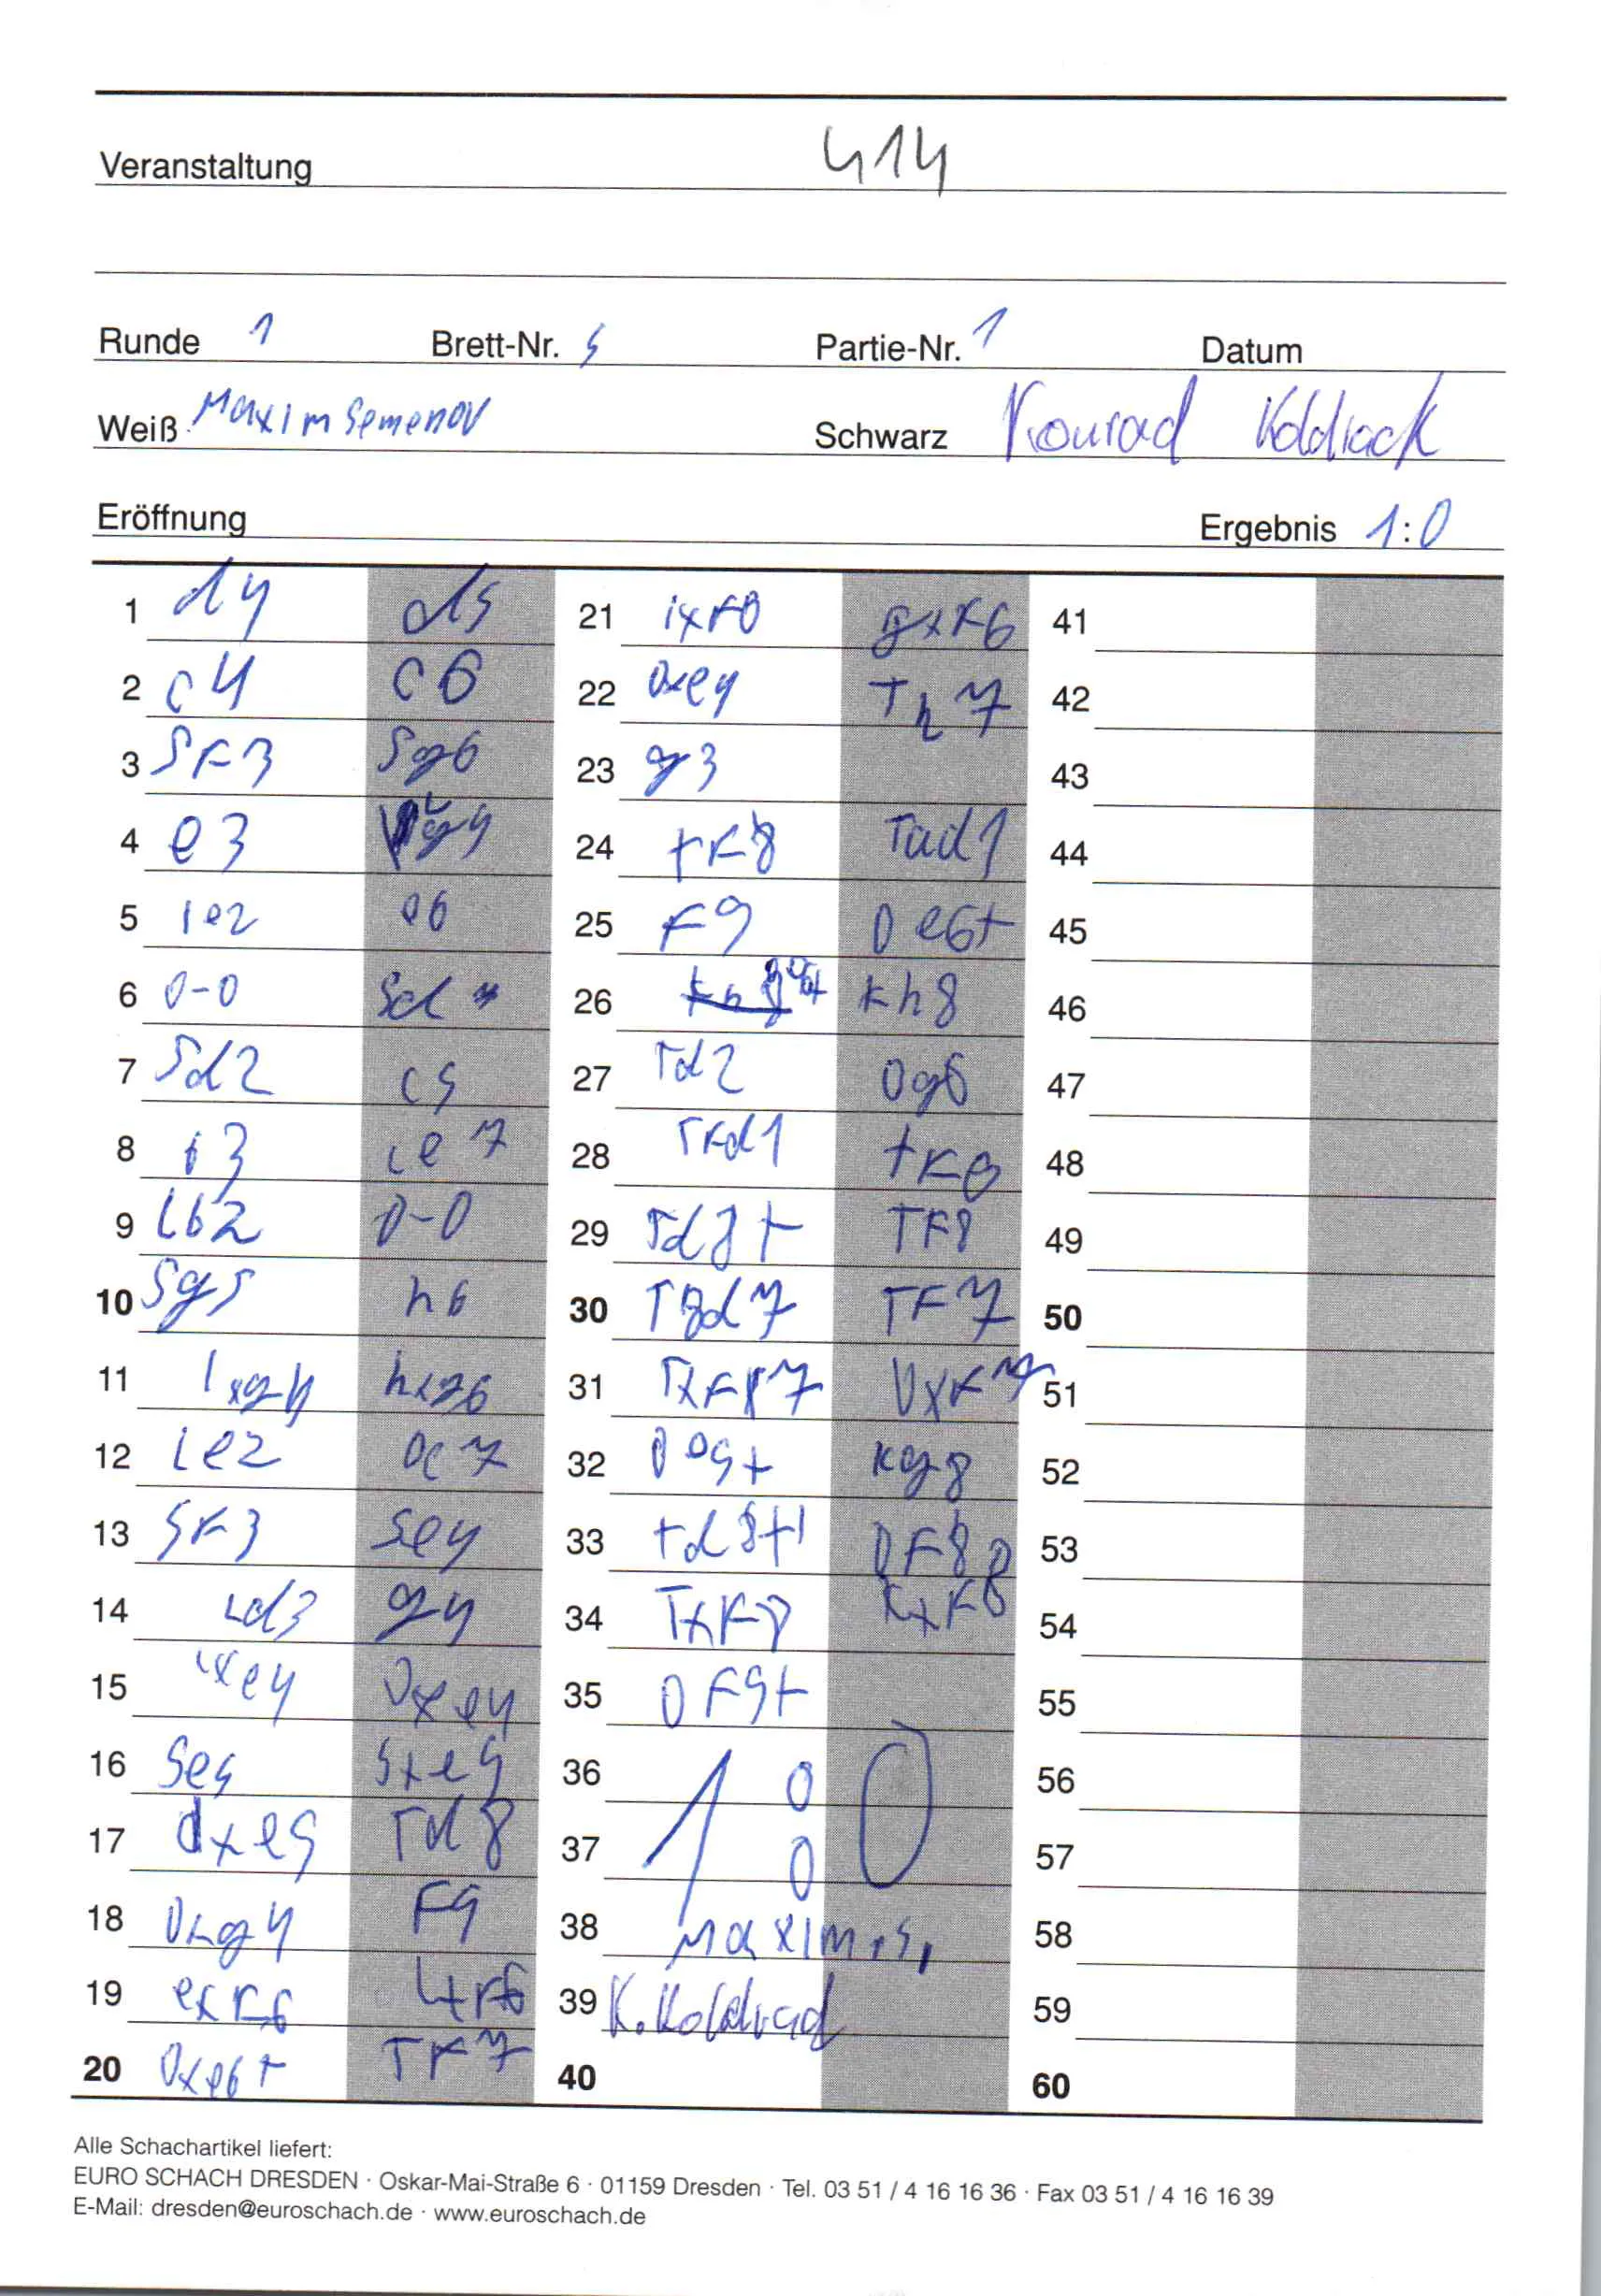 Veranstaltung 414
Runde 1 Brett-Nr. 5 Partie-Nr. 1 Datum
Weiß Maxim Semenov Schwarz Konrad Koldrack
Eröffnung Ergebnis 1:0
1 d4 d5 21 ixF8 gxF6 41
2 c4 c6 22 Dxe4 Th7 42
3 SF3 Sg6 23 g3 43
4 e3 Lg4 24 TF8 Tad1 44
5 le2 e6 25 F9 De6+ 45
6 0-0 Sd7 26 Kh8 46
7 Sd2 c5 27 Td2 Dg6 47
8 i3 le7 28 TFd1 TF8 48
9 Lb2 0-0 29 Td8+ TF8 49
10 Sg5 h6 30 T8d7 TF7 50
11 lxg4 hxg6 31 TxF7 DxF7 51
12 le2 Dc7 32 De5+ Kg8 52
13 SF3 Se4 33 Td8+! DF8 53
14 Ld3 g4 34 TxF8 KxF8 54
15 lxe4 Dxe4 35 DF5+ 55
16 Se5 Sxe5 36 56
17 dxe5 Td8 37 57
18 Dxg4 F5 38 Maxim.S, 58
19 exF6 LxF6 39 K.Koldrad 59
20 Dxe6+ TF7 40 60
1 0 0
0
Alle Schachartikel liefert:
EURO SCHACH DRESDEN · Oskar-Mai-Straße 6 · 01159 Dresden · Tel. 03 51 / 4 16 16 36 · Fax 03 51 / 4 16 16 39
E-Mail: dresden@euroschach.de · www.euroschach.de